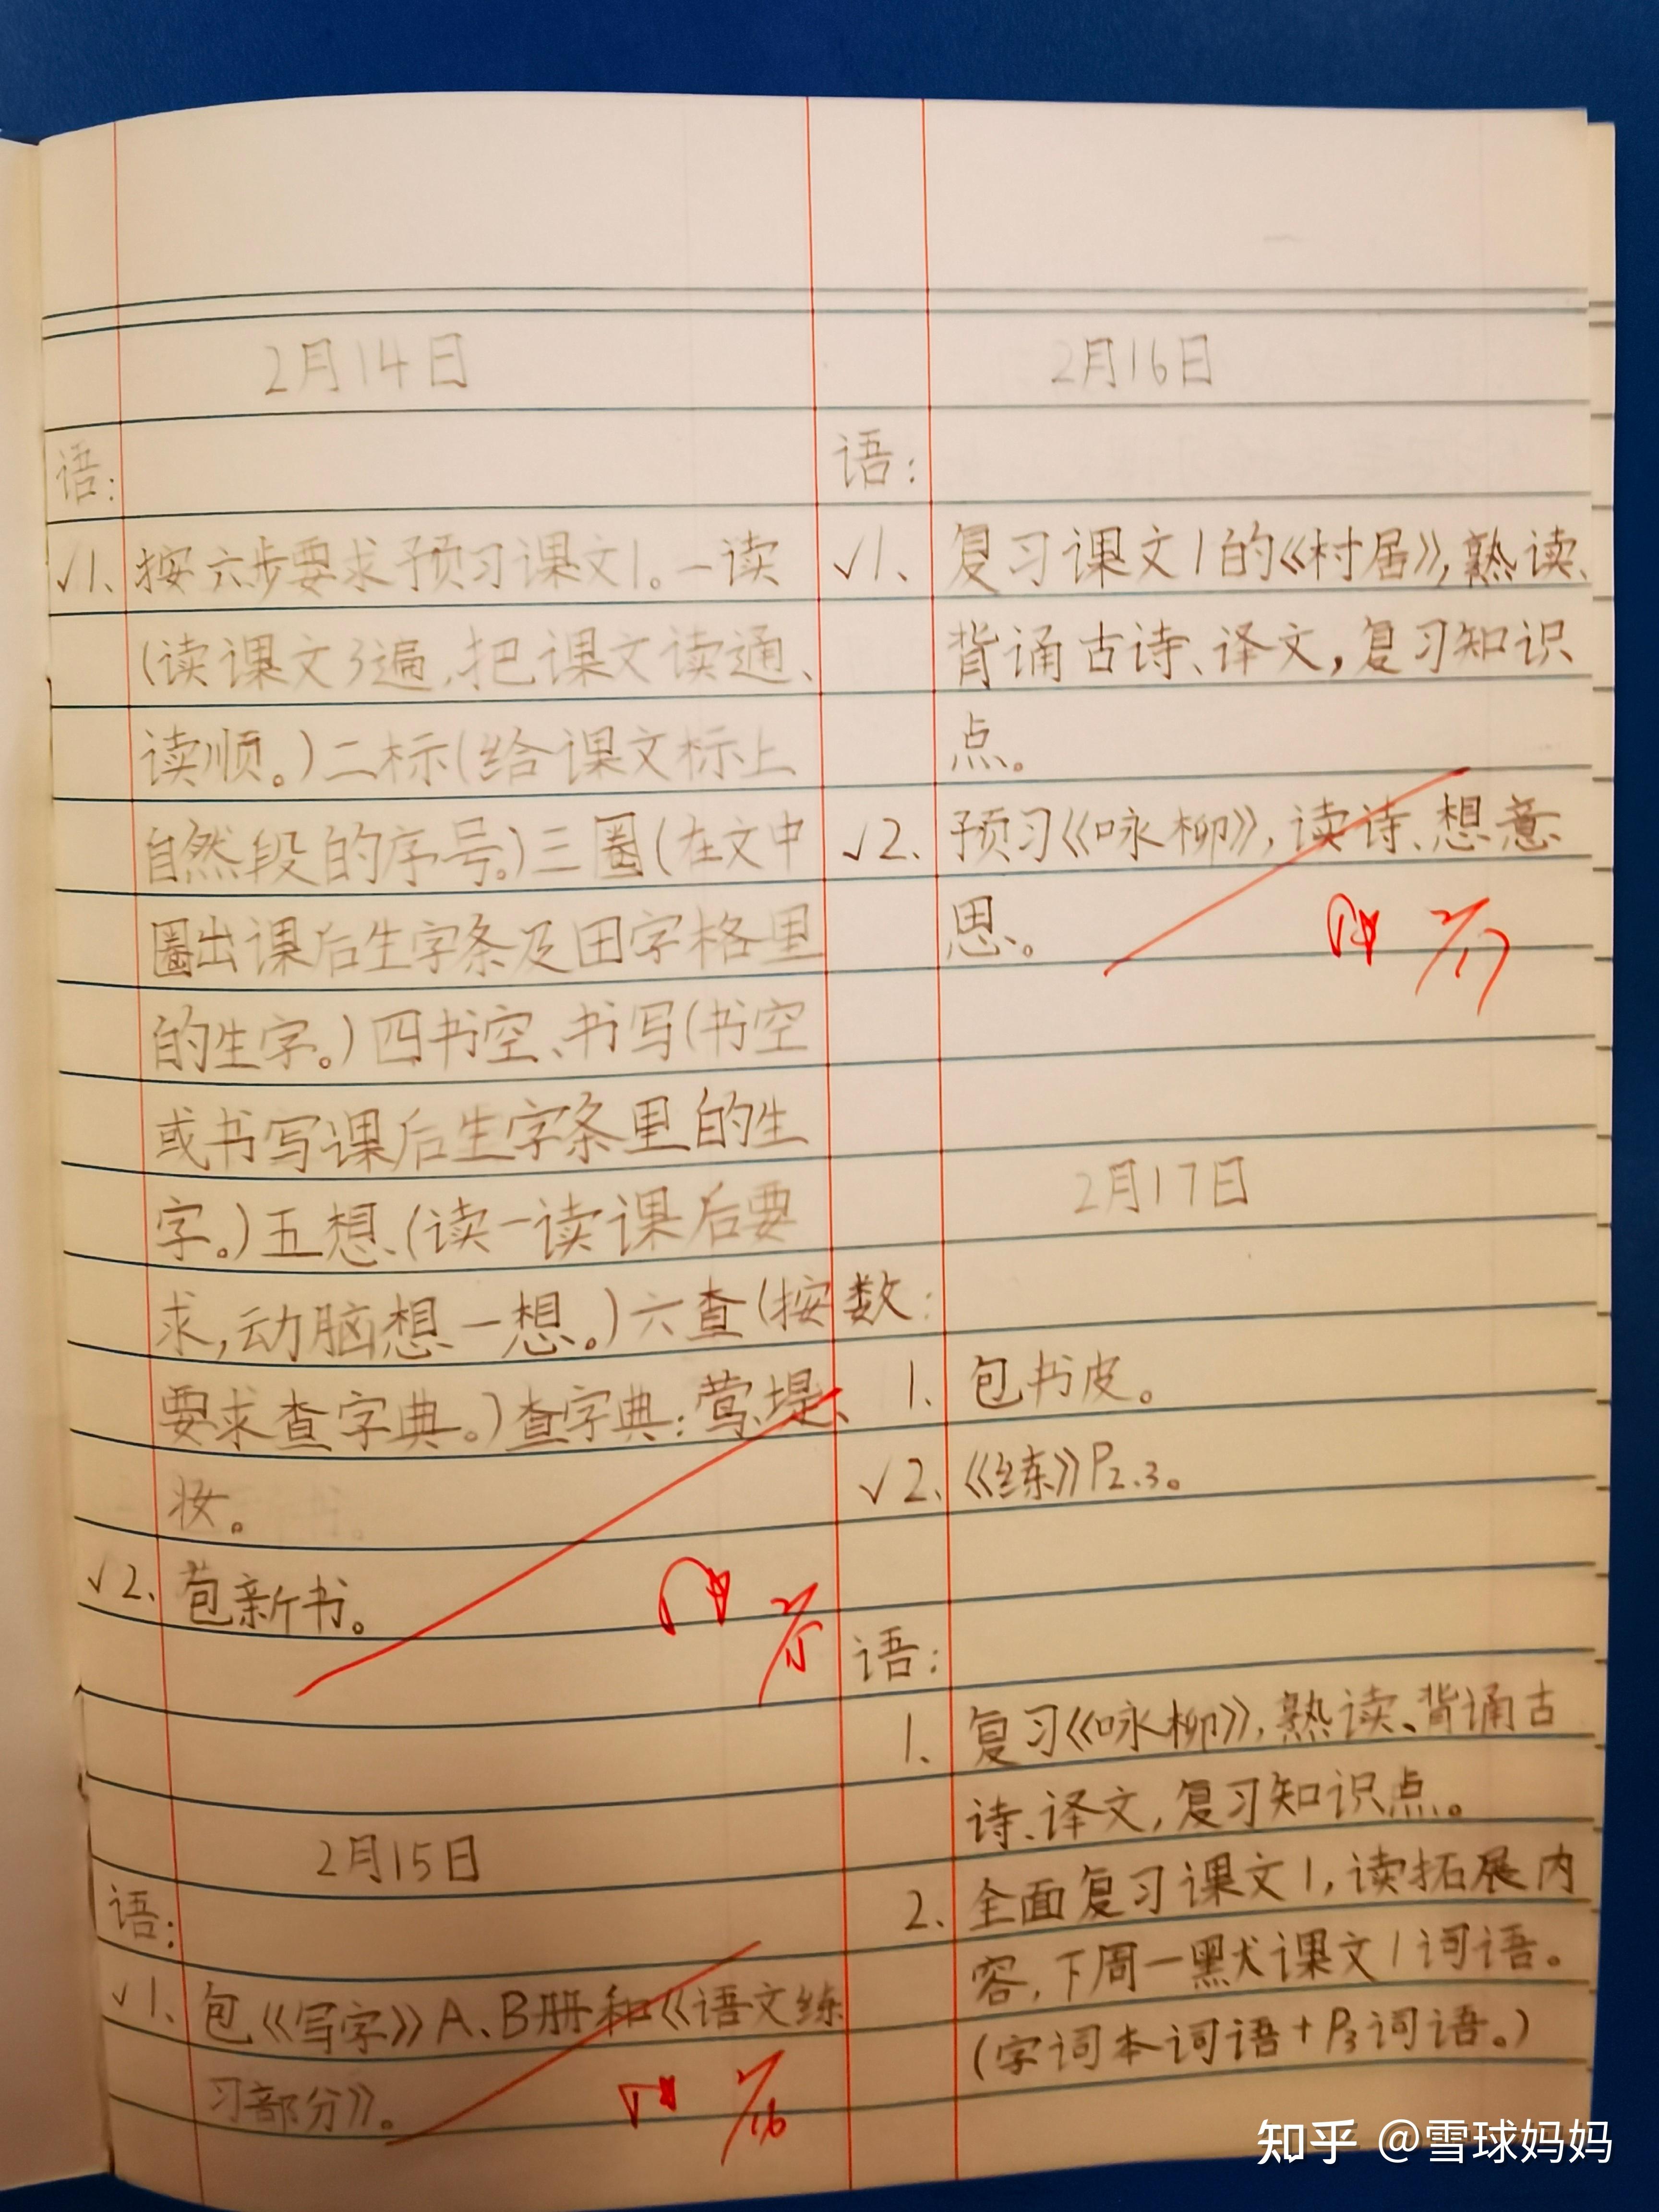 2月14日
语:
√1、按六步要求预习课文1。一读
(读课文3遍,把课文读通、
读顺。)二标(给课文标上
自然段的序号。)三圈(在文中
圈出课后生字条及田字格里
的生字。)四书空、书写(书空
或书写课后生字条里的生
字。)五想、(读一读课后要
求,动脑想一想。)六查(按
要求查字典。)查字典:莺、堤、
妆。
√2、苞新书。
2/15
2月15日
语:
√1、包《写字》A、B册和《语文练
习部分》。
2/16
2月16日
语:
√1、复习课文1的《村居》,熟读、
背诵古诗、译文,复习知识
点。
√2、预习《咏柳》,读诗、想意
思。
2/17
2月17日
数:
1、包书皮。
√2、《练》P2、3。
语:
1、复习《咏柳》,熟读、背诵古
诗、译文,复习知识点。
2、全面复习课文1,读拓展内
容,下周一默课文1词语。
(字词本词语+P3词语。)
知乎 @雪球妈妈